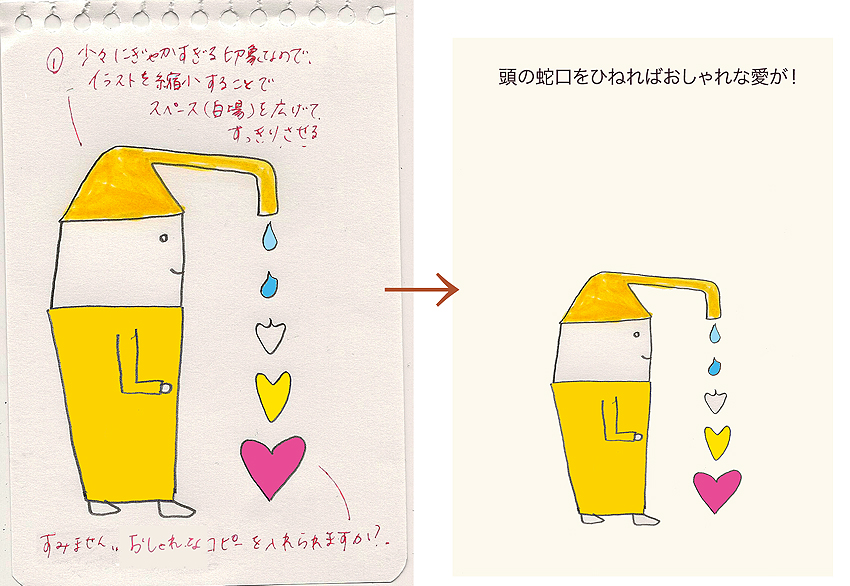 ① 少々にぎやかすぎる印象なので、
イラストを縮小することで
スペース(白場)を広げて
すっきりさせる
すみません、おしゃれなコピーを入れられますか?
頭の蛇口をひねればおしゃれな愛が!